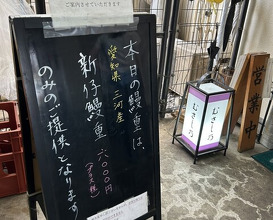 ご案内させていただきます
本日の鰻重は、
愛知県 三河産
新仔鰻重 六〇〇〇円
(プラス税)
のみのご提供となります
むさし乃
むさし乃
営業中